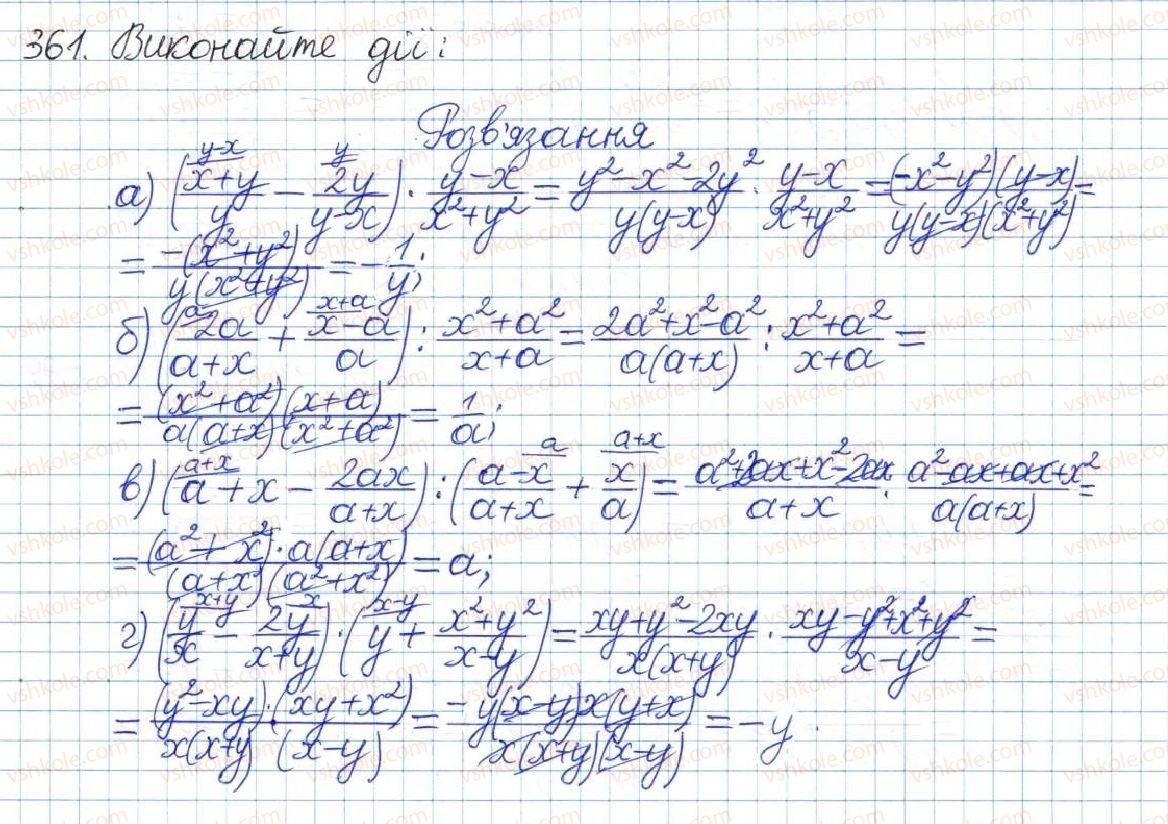 361. Виконайте дії:
Розв'язання
а) ((x+y)/y - 2y/(y-x)) · (y-x)/(x²+y²) = (y²-x²-2y²)/(y(y-x)) · (y-x)/(x²+y²) = (-x²-y²)(y-x)/(y(y-x)(x²+y²)) =
= -(x²+y²)/(y(x²+y²)) = -1/y;
б) (2a/(a+x) + (x-a)/a) : (x²+a²)/(x+a) = (2a²+x²-a²)/(a(a+x)) : (x²+a²)/(x+a) =
= (x²+a²)(x+a)/(a(a+x)(x²+a²)) = 1/a;
в) (a+x - 2ax/(a+x)) : ((a-x)/(a+x) + x/a) = (a²+2ax+x²-2ax)/(a+x) : (a²-ax+ax+x²)/(a(a+x)) =
= (a²+x²)·a(a+x)/((a+x)(a²+x²)) = a;
г) (y/x - 2y/(x+y)) · (y + (x²+y²)/(x-y)) = (xy+y²-2xy)/(x(x+y)) · (xy-y²+x²+y²)/(x-y) =
= (y²-xy)·(xy+x²)/(x(x+y)(x-y)) = -y(x-y)x(y+x)/(x(x+y)(x-y)) = -y.